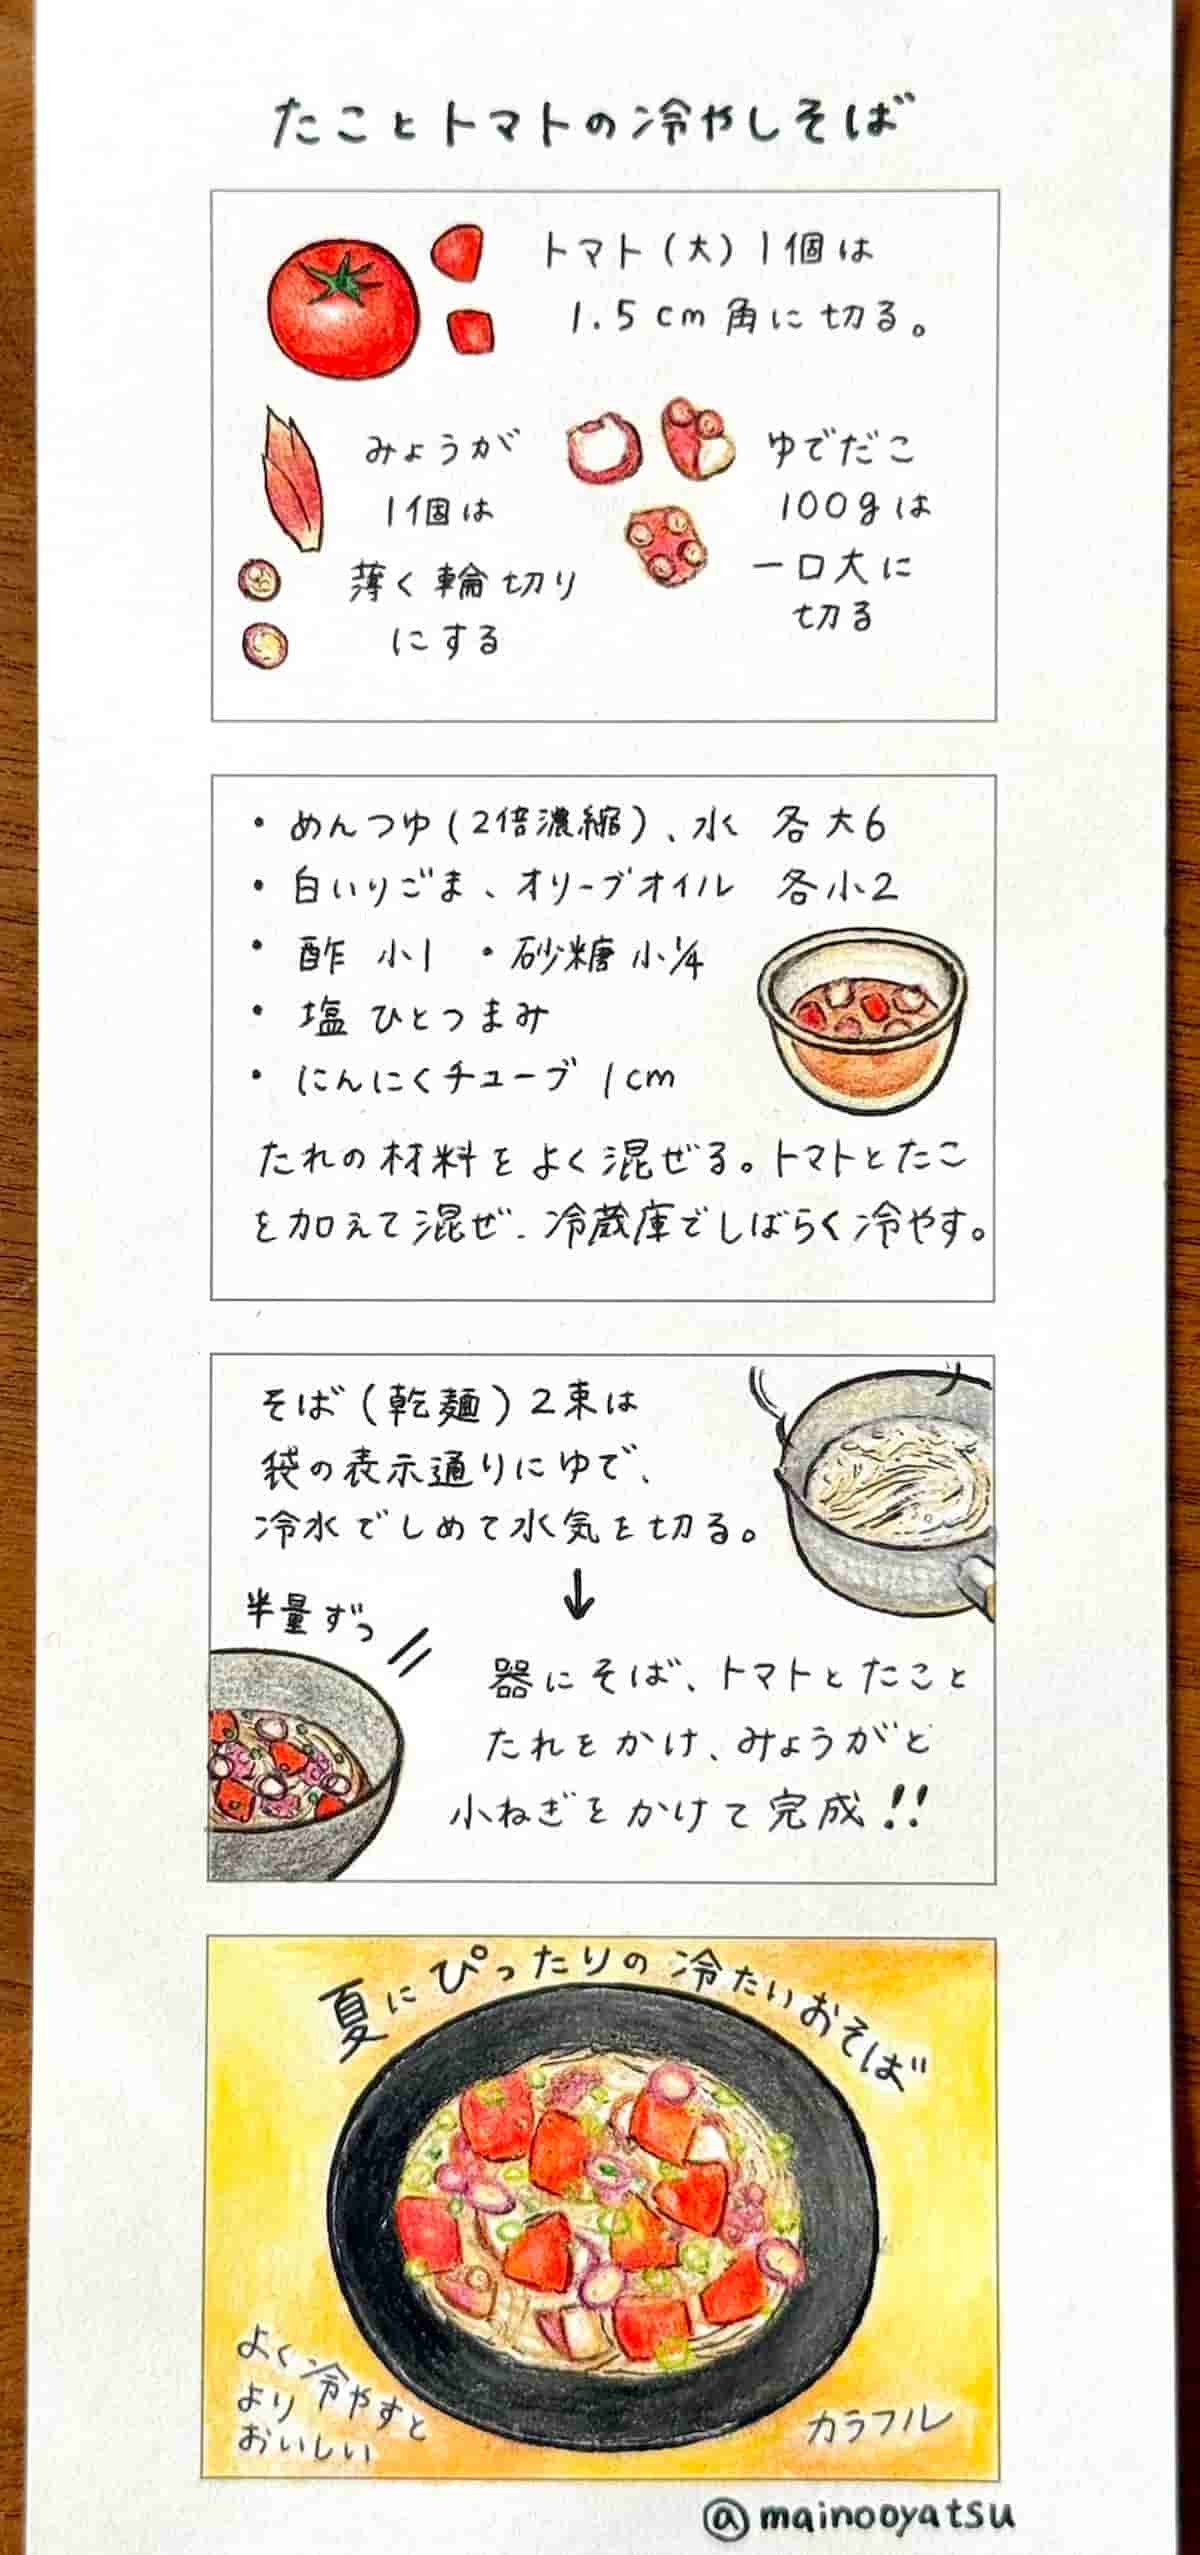 たことトマトの冷やしそば
トマト(大)1個は
1.5cm角に切る。
みょうが
1個は
薄く輪切り
にする
ゆでだこ
100gは
一口大に
切る
・めんつゆ(2倍濃縮)、水 各大6
・白いりごま、オリーブオイル 各小2
・酢 小1 ・砂糖 小1/4
・塩 ひとつまみ
・にんにくチューブ 1cm
たれの材料をよく混ぜる。トマトとたこ
を加えて混ぜ、冷蔵庫でしばらく冷やす。
そば(乾麺)2束は
袋の表示通りにゆで、
冷水でしめて水気を切る。
↓
半量ずつ
器にそば、トマトとたこと
たれをかけ、みょうがと
小ねぎをかけて完成!!
夏にぴったりの冷たいおそば
よく冷やすと
より
おいしい
カラフル
@mainooyatsu